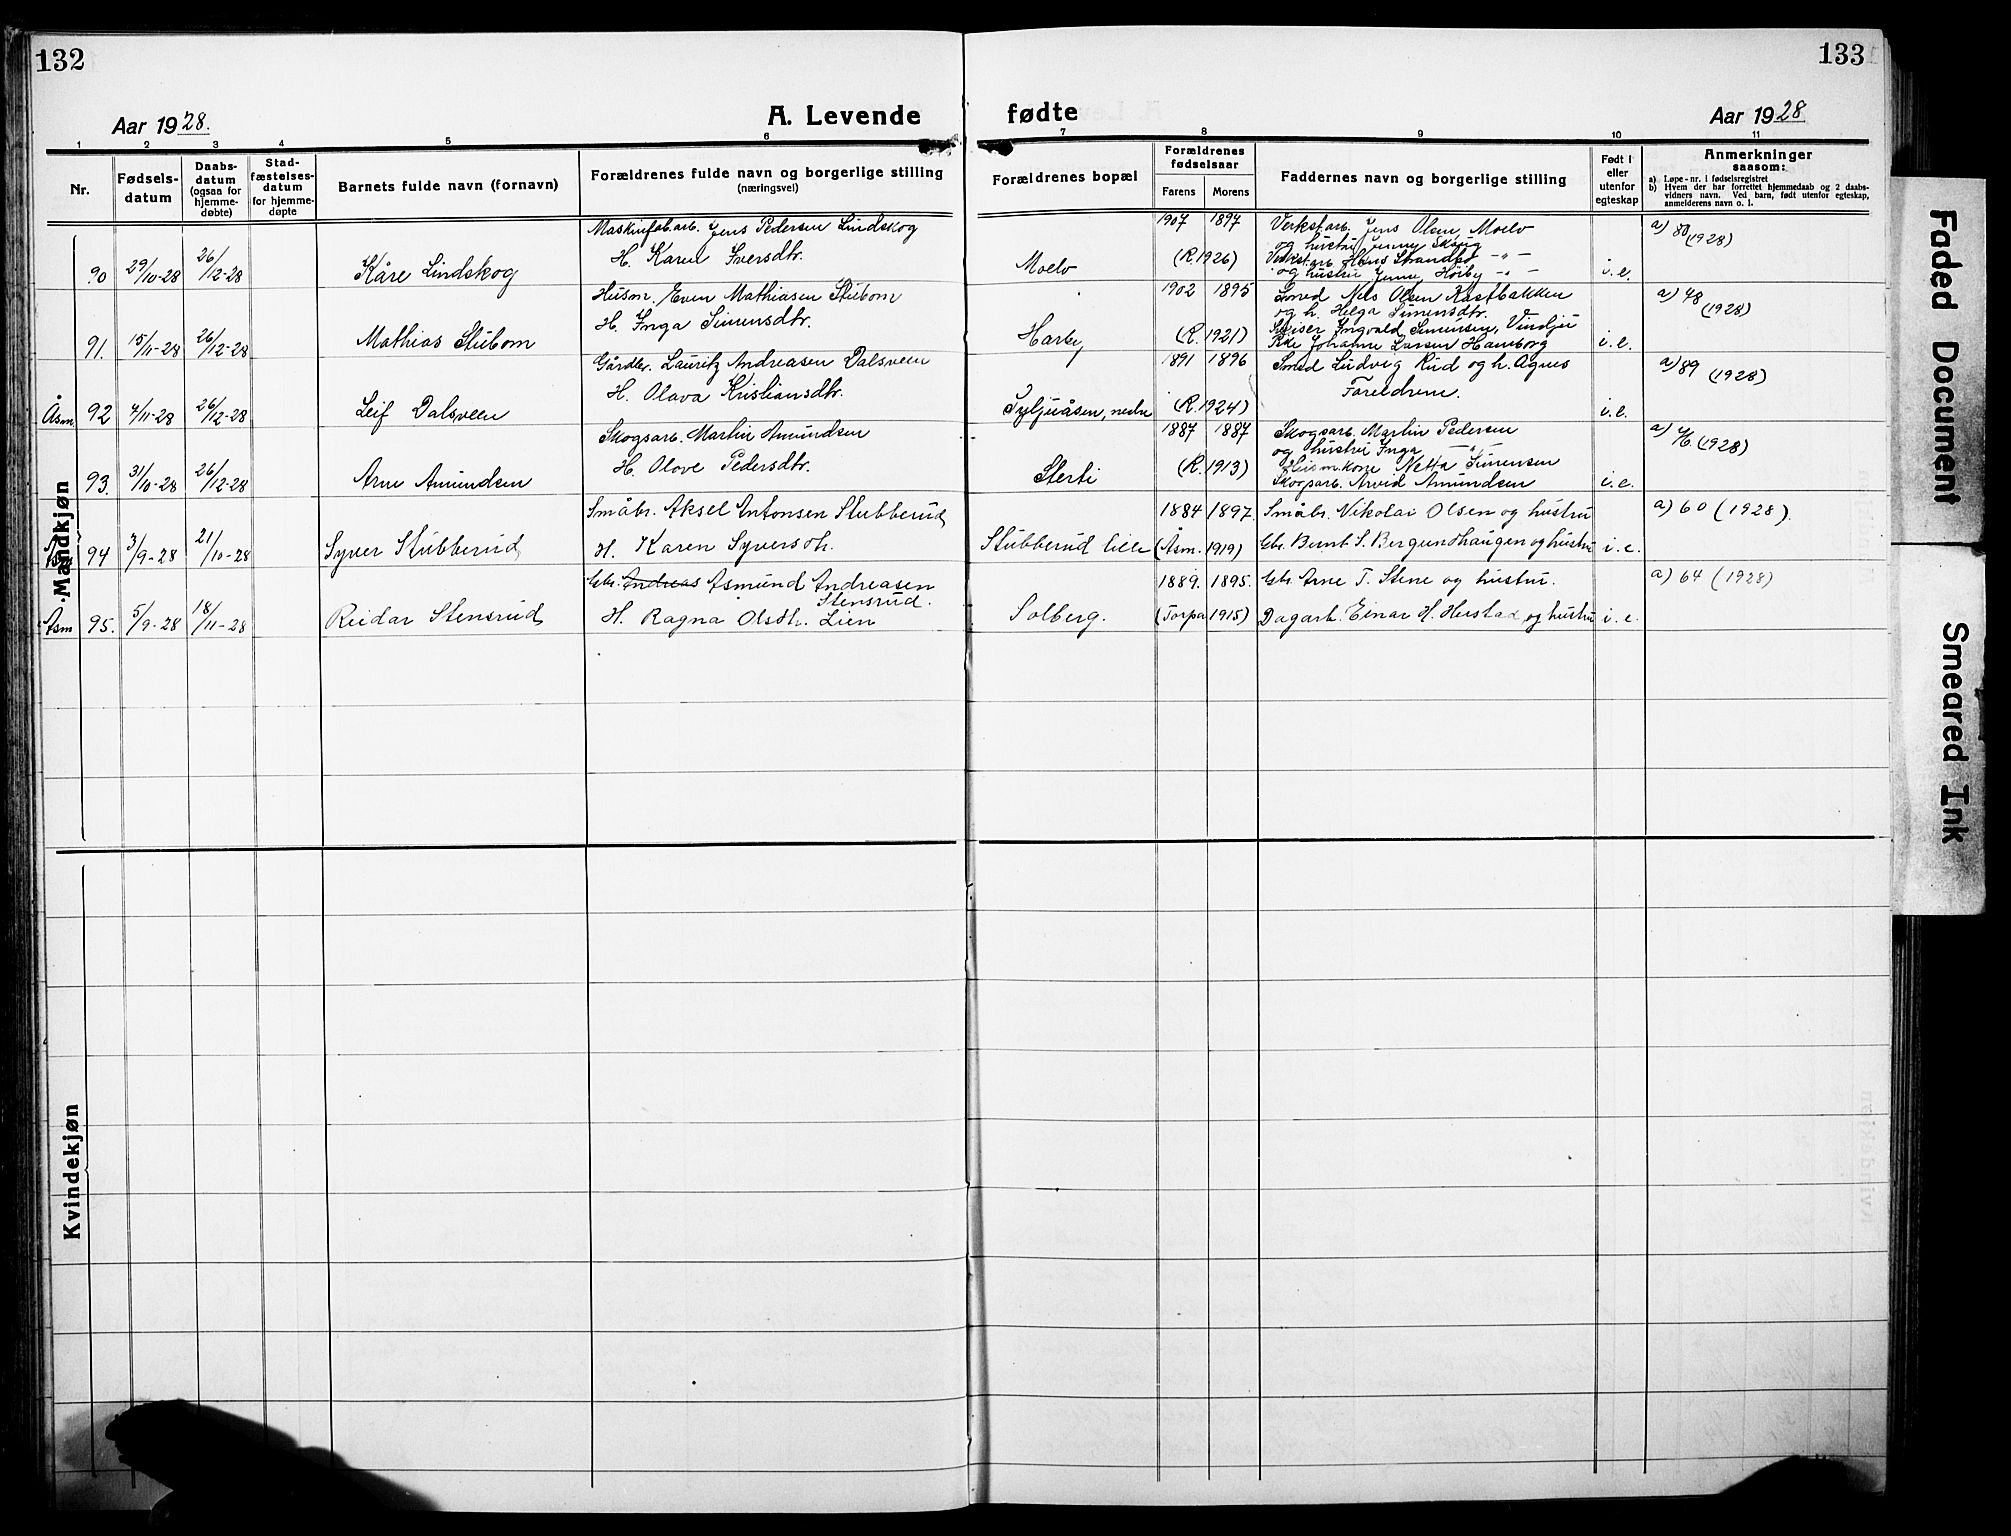 132
133
Aar 1928.
A. Levende
fødte
Aar 1928
1 2 3 4 5 6 7 8 9 10 11
Nr.
Fødsels-
datum
Daabs-
datum
(ogsaa for
hjemme-
døbte)
Stad-
fæstelses-
datum
for hjemme-
døpte
Barnets fulde navn (fornavn)
Forældrenes fulde navn og borgerlige stilling
(næringsvei)
Forældrenes bopæl
Forældrenes
fødselsaar
Farens
Morens
Faddernes navn og borgerlige stilling
Født i
eller
utenfor
egteskap
Anmerkninger
saasom:
a) Løpe-nr. i fødselsregistret
b) Hvem der har forrettet hjemmedaab og 2 daabs-
vidners navn. Ved barn, født utenfor egteskap,
anmelderens navn o. l.
Mandkjøn
Maskinfab.arb. Jens Pedersen Lindskog 1907 1897 Verkst.arb. Jens Olsen, Moelv a) 80 (1928)
og hustru Jenny Skaug
90 29/10-28 26/12-28 Kåre Lindskog H. Karen Iversdtr. Moelv (R. 1926) Verkst.arb. Hans Strandbo -"-
og hustru Jenny Høiby -"- i.e.
Husm. Even Mathiasen Stubom 1902 1895 Smed Nels Olsen Kastbakken a) 48 (1928)
og h. Helga Simensdtr.
91. 15/11-28 26/12-28 Mathias Stubom H. Inga Simensdtr. (R. 1921) Ingvald Simensen, Vindju
Johanne Larsen Hamborg i.e.
Gårdbr. Lauritz Andreasen Dalsveen 1891 1896 Smed Ludvig Rud og h. Agnes a) 89 (1928)
Åsm. 92 4/11-28 26/12-28 Leif Dalsveen H. Olava Kristiansdtr. nedre (R. 1924) Foreldrene. i.e.
Skogsarb. Martin Amundsen 1887 1887 Skogsarb. Martin Pedersen a) (1928)
og hustru Inga -"-
93. 31/10-28 26/12-28 Arne Amundsen H. Olove Pedersdtr. Sterti (R. 1913) Husm.kone Netta Simensen
Skogsarb. Arvid Amundsen i.e.
Småbr. Aksel Antonsen Stubberud 1884 1897. Småbr. Nikolai Olsen og hustru a) 60 (1928).
94 3/9-28 21/10-28 Syver Stubberud H. Karen Syversdtr. Stubberud lille (Åsm. 1919) Gbr. Bernt S. Bergundhaugen og hustru i.e.
Gbr. Andreas Asmund Andreasen 1889. 1895. Gbr. Arne T. Stene og hustru. a) 64 (1928)
Stensrud.
Åsm 95. 5/9-28 18/11-28 Reidar Stensrud H. Ragna Olsdtr. Lien Solberg. (Torpa 1915) Dagarb. Einar H. Heistad og hustru i.e.
Kvindekjøn
Faded Document
Smeared Ink